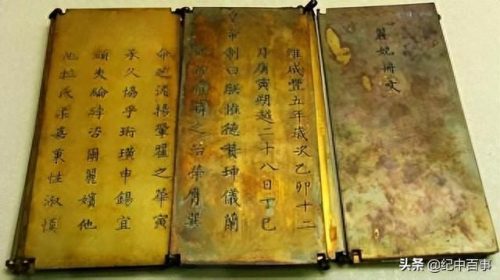 麗妃冊文
惟咸豐五年歲次乙卯十二
月庚寅朔越二十八日丁巳
皇帝制曰朕惟德贊坤儀蘭
之治榮膺巽
命之揚翬翟之華寅
承久協乎珩璜申錫宜
頒夫綸綍咨爾麗嬪他
他拉氏柔嘉秉性淑慎
头条 @纪中百事